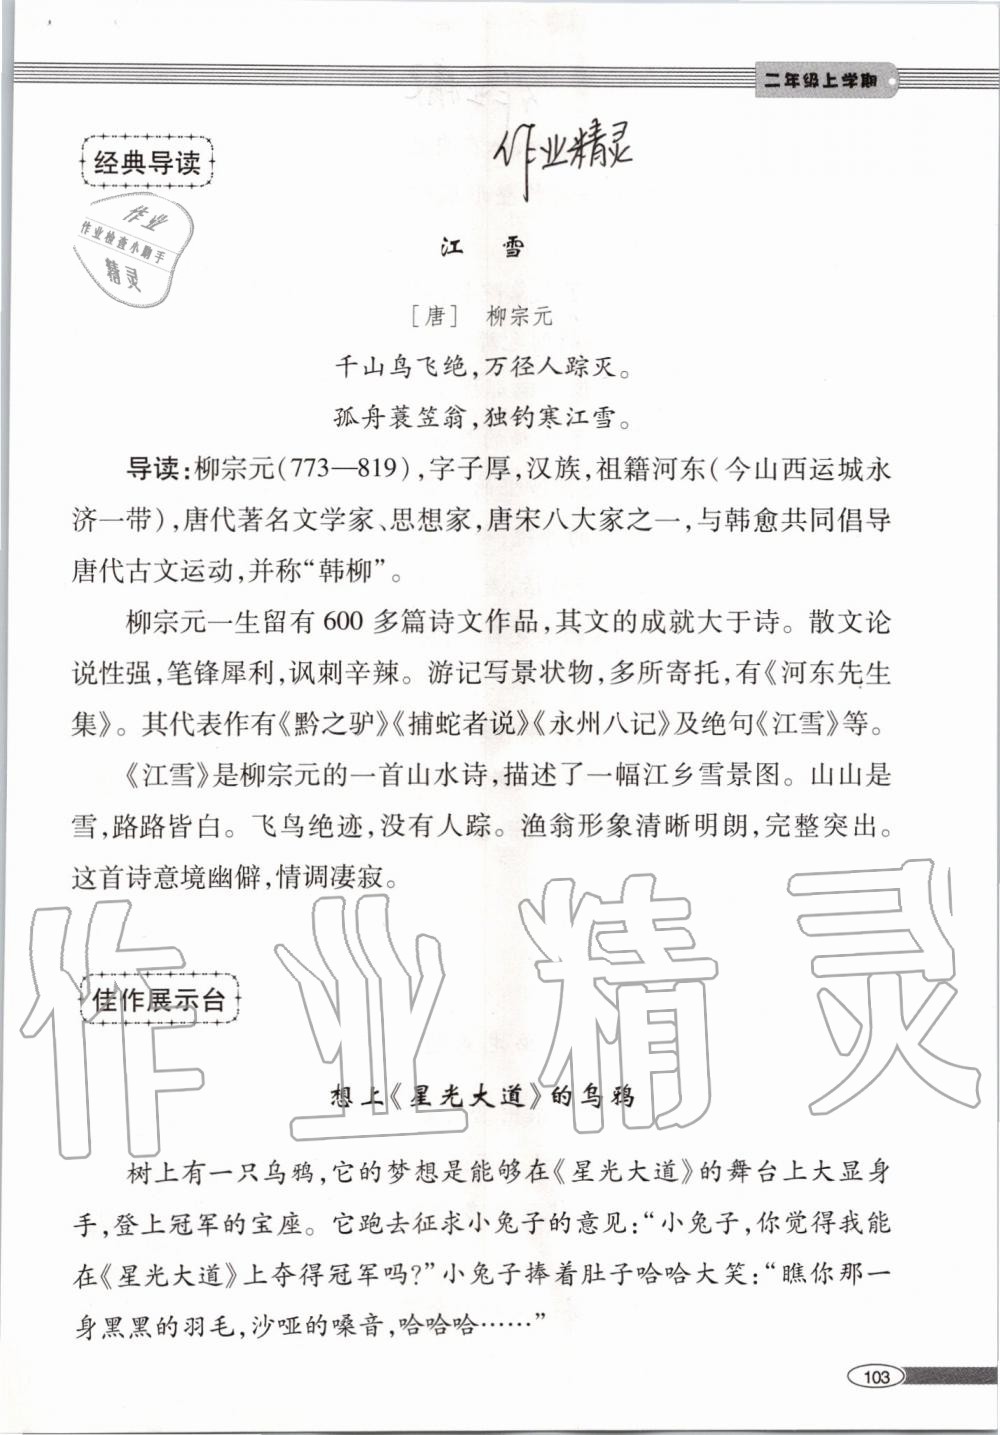 二年级上学期
经典导读
作业精灵
作业
作业检查小助手
精灵
江 雪
［唐］ 柳宗元
千山鸟飞绝，万径人踪灭。
孤舟蓑笠翁，独钓寒江雪。
导读：柳宗元（773—819），字子厚，汉族，祖籍河东（今山西运城永
济一带），唐代著名文学家、思想家，唐宋八大家之一，与韩愈共同倡导
唐代古文运动，并称“韩柳”。
柳宗元一生留有 600 多篇诗文作品，其文的成就大于诗。散文论
说性强，笔锋犀利，讽刺辛辣。游记写景状物，多所寄托，有《河东先生
集》。其代表作有《黔之驴》《捕蛇者说》《永州八记》及绝句《江雪》等。
《江雪》是柳宗元的一首山水诗，描述了一幅江乡雪景图。山山是
雪，路路皆白。飞鸟绝迹，没有人踪。渔翁形象清晰明朗，完整突出。
这首诗意境幽僻，情调凄寂。
作业精灵
佳作展示台
想上《星光大道》的乌鸦
树上有一只乌鸦，它的梦想是能够在《星光大道》的舞台上大显身
手，登上冠军的宝座。它跑去征求小兔子的意见：“小兔子，你觉得我能
在《星光大道》上夺得冠军吗？”小兔子捧着肚子哈哈大笑：“瞧你那一
身黑黑的羽毛，沙哑的嗓音，哈哈哈……”
103